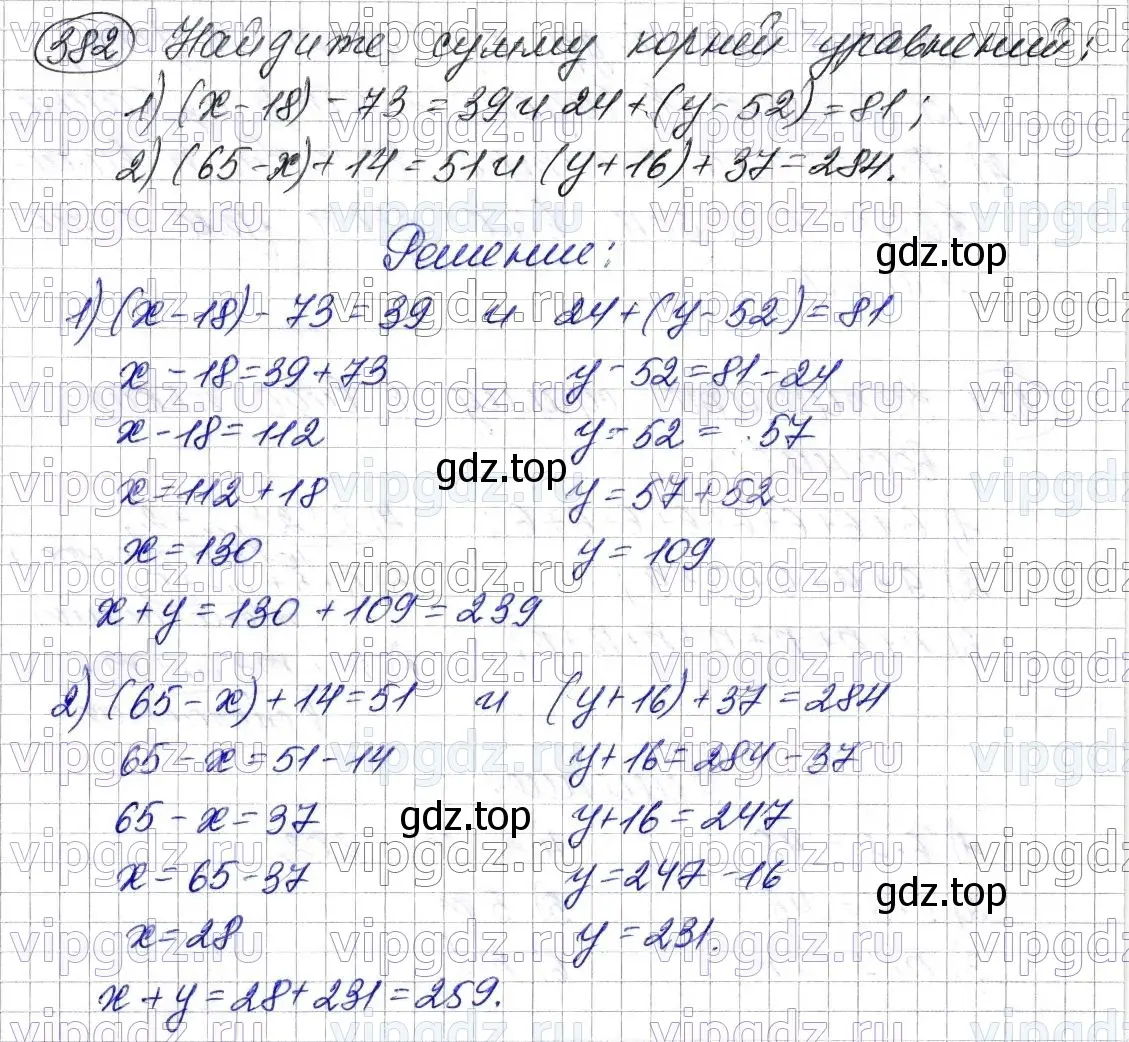 382 Найдите сумму корней уравнений:
1) (x-18) - 73 = 39 и 24 + (y - 52) = 81;
2) (65 - x) + 14 = 51 и (y + 16) + 37 = 284.
Решение:
gdz.top
1) (x - 18) - 73 = 39 и 24 + (y - 52) = 81
x - 18 = 39 + 73 y - 52 = 81 - 24
x - 18 = 112 y - 52 = 57
gdz.top
x = 112 + 18 y = 57 + 52
x = 130 y = 109
x + y = 130 + 109 = 239
2) (65 - x) + 14 = 51 и (y + 16) + 37 = 284
65 - x = 51 - 14 y + 16 = 284 - 37
65 - x = 37 y + 16 = 247
gdz.top
x = 65 - 37 y = 247 - 16
gdz.top
x = 28 y = 231.
x + y = 28 + 231 = 259.
vipgdz.ru